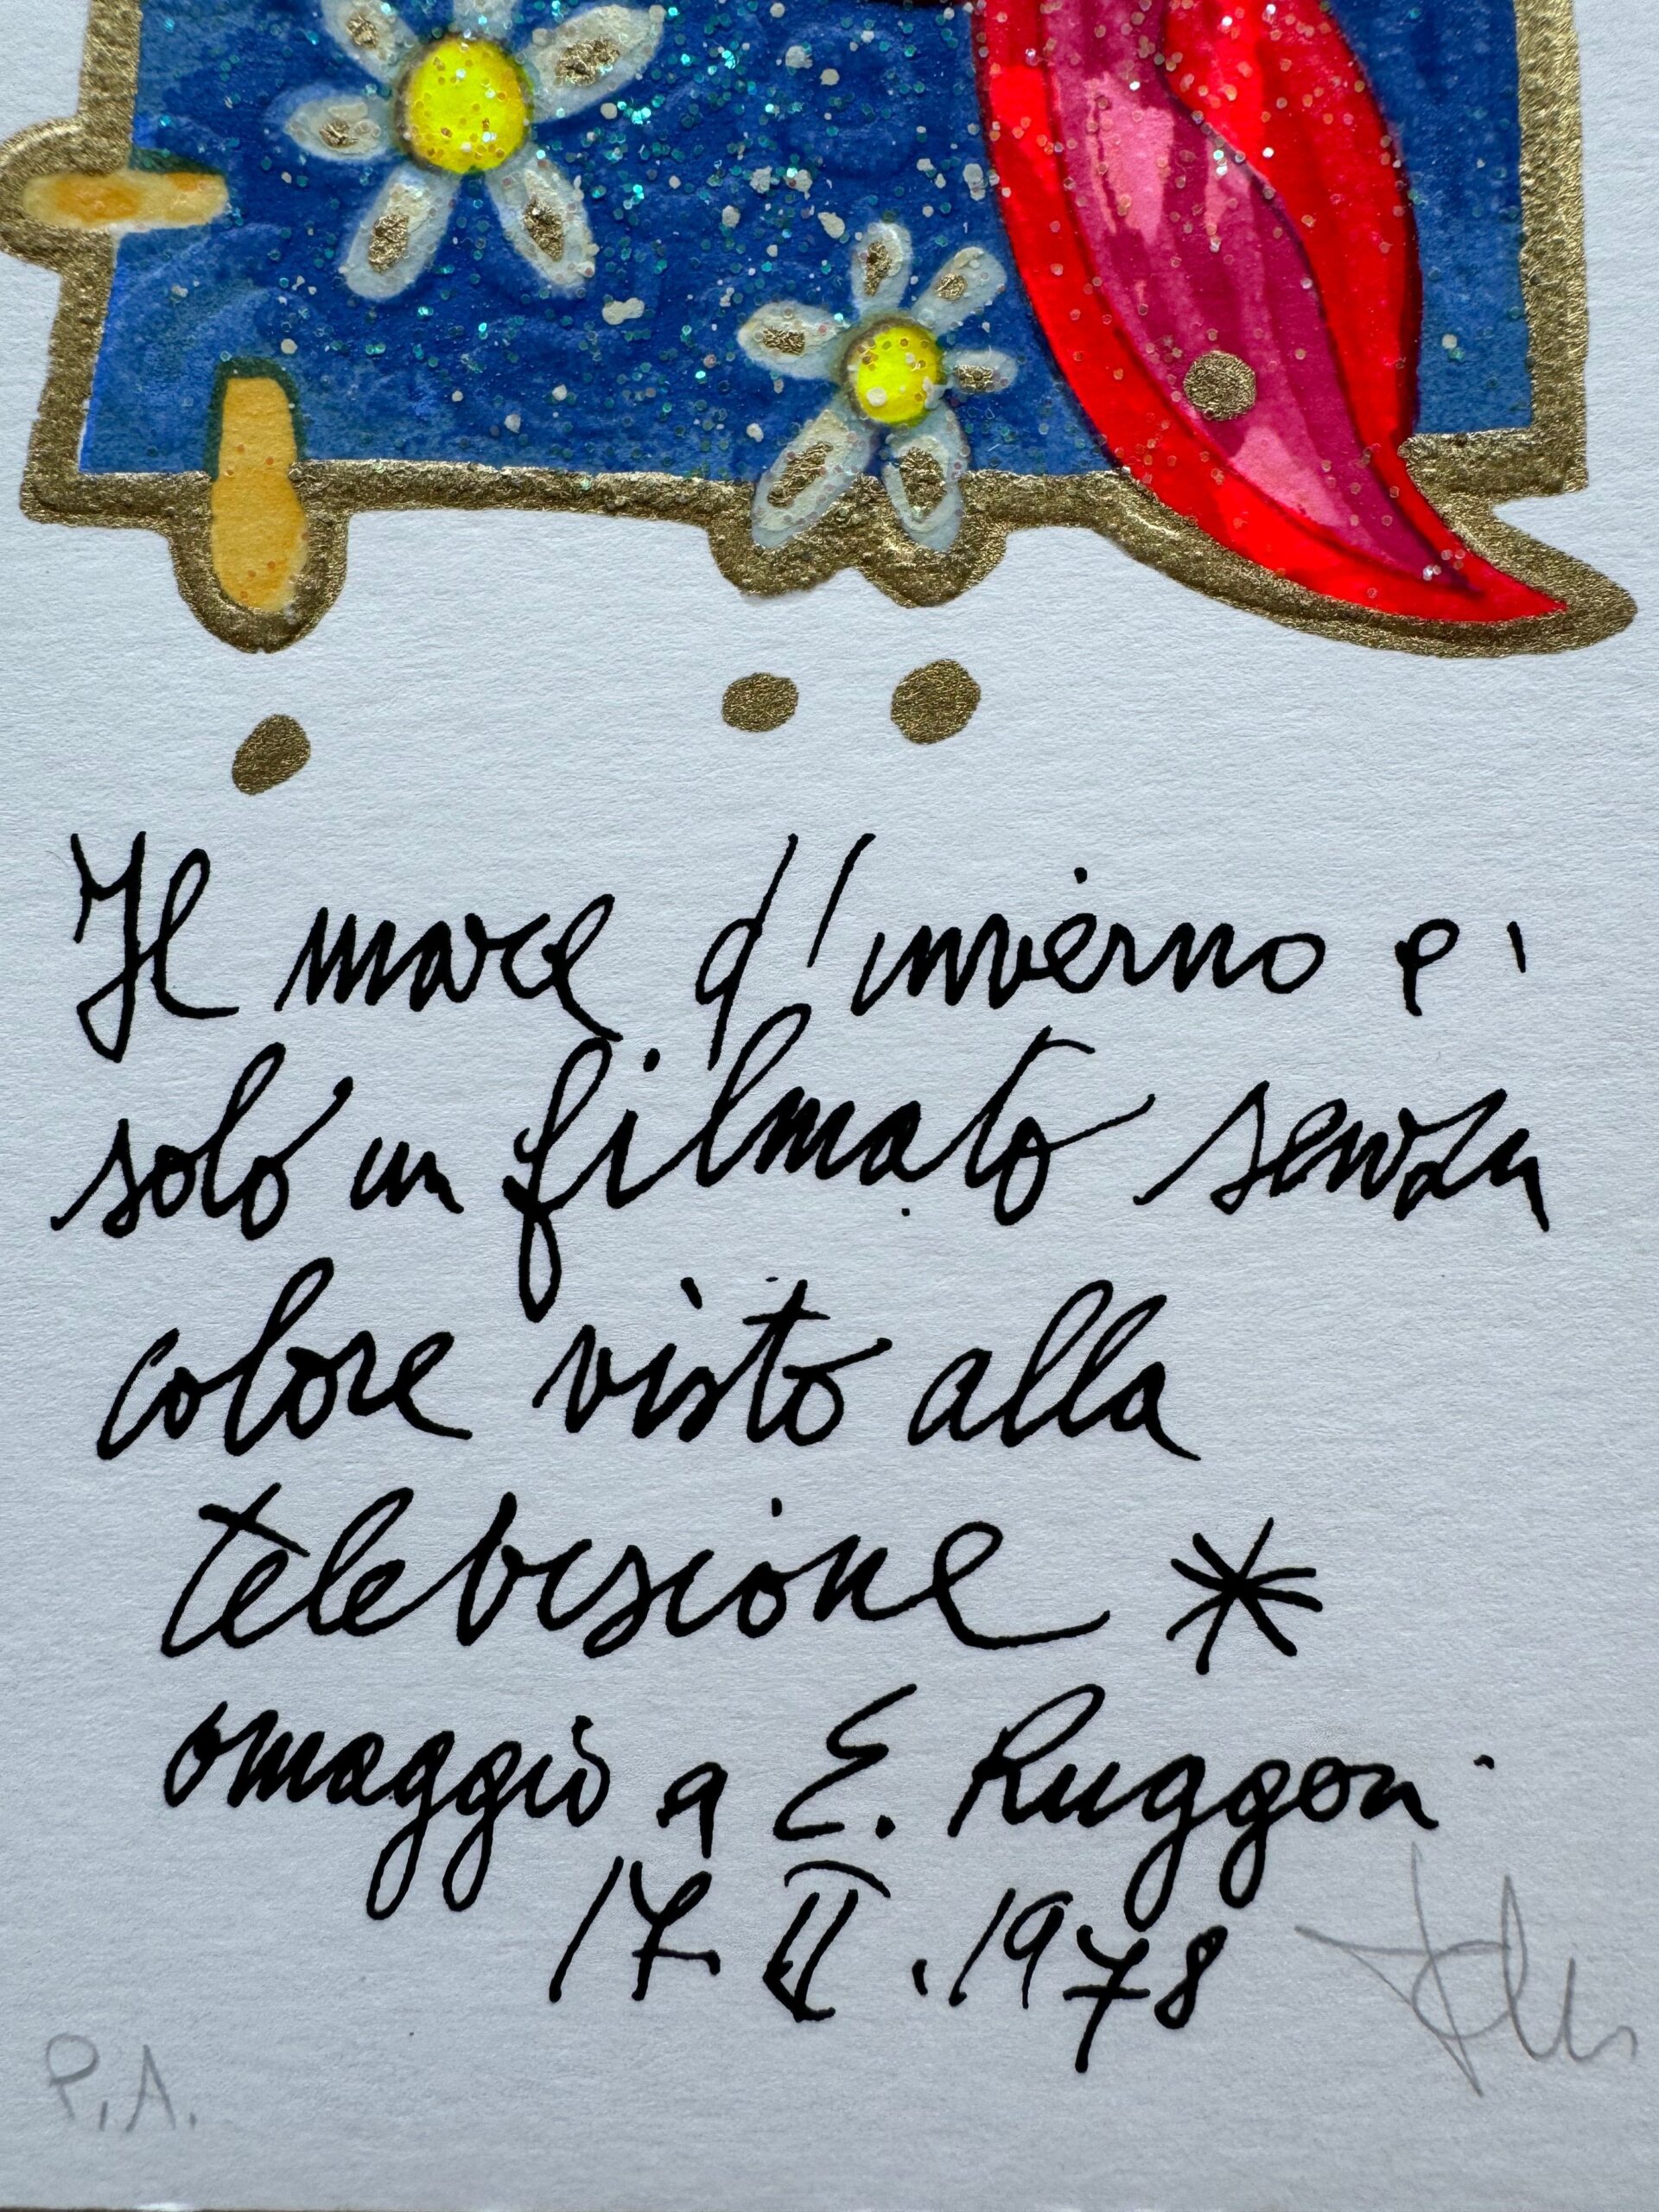 Il mare d'inverno e'
solo un filmato senza
colore visto alla
televisione *
omaggio a E. Ruggeri
17. II. 1978
P.A.